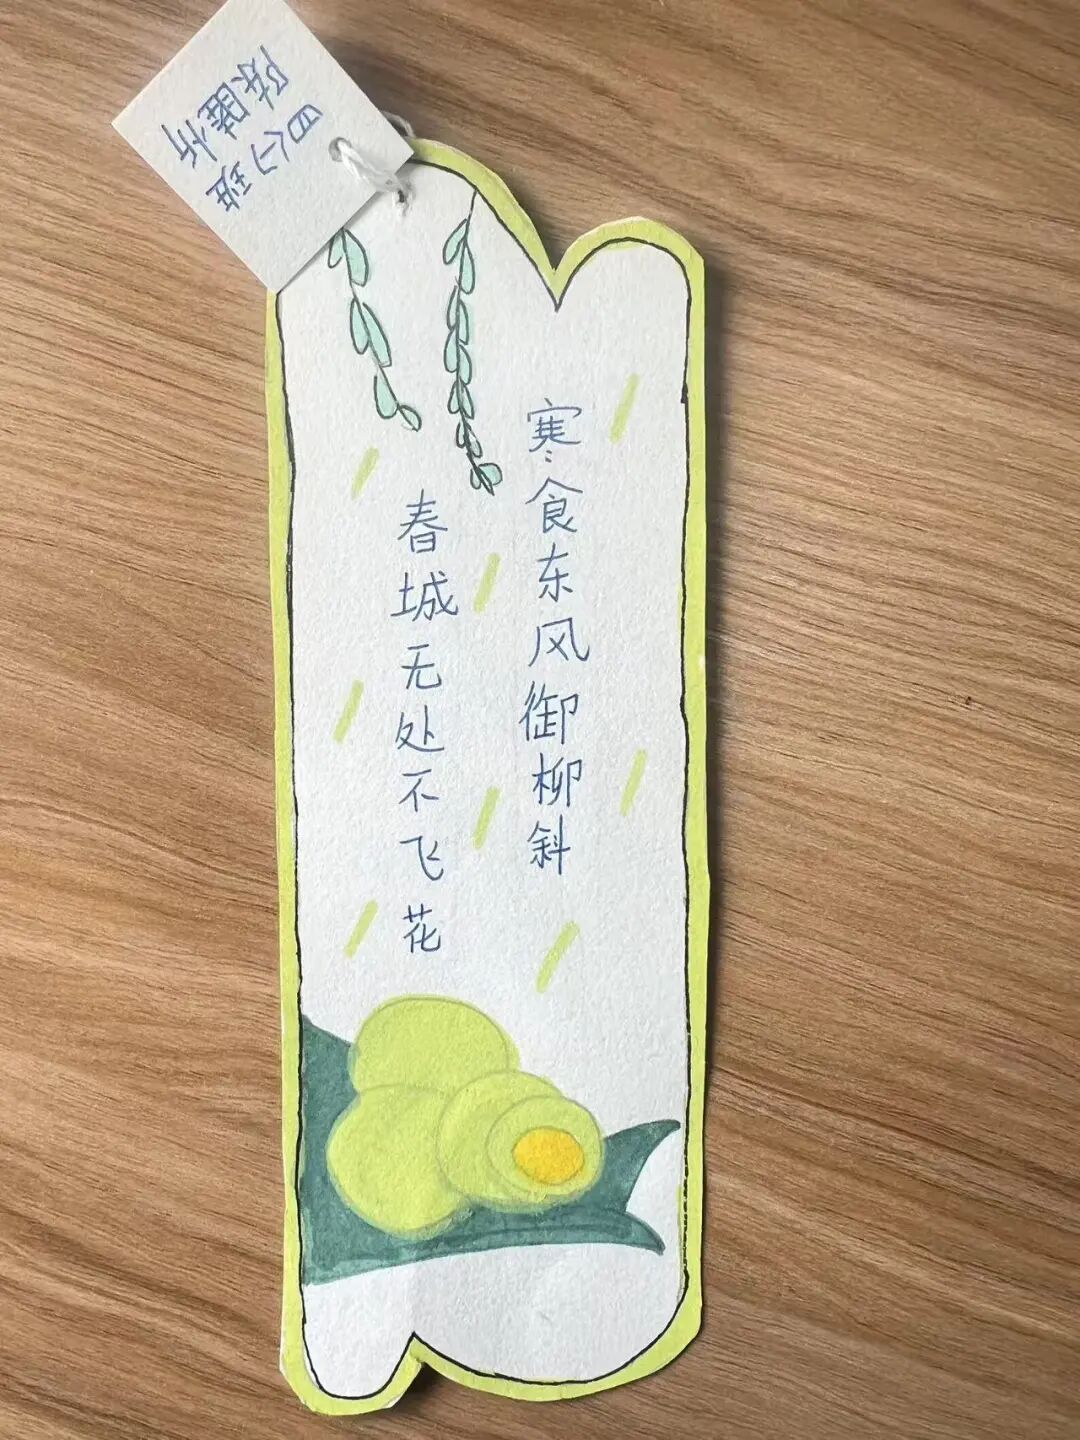 寒食东风御柳斜
春城无处不飞花
四(7)班
陈睢忻